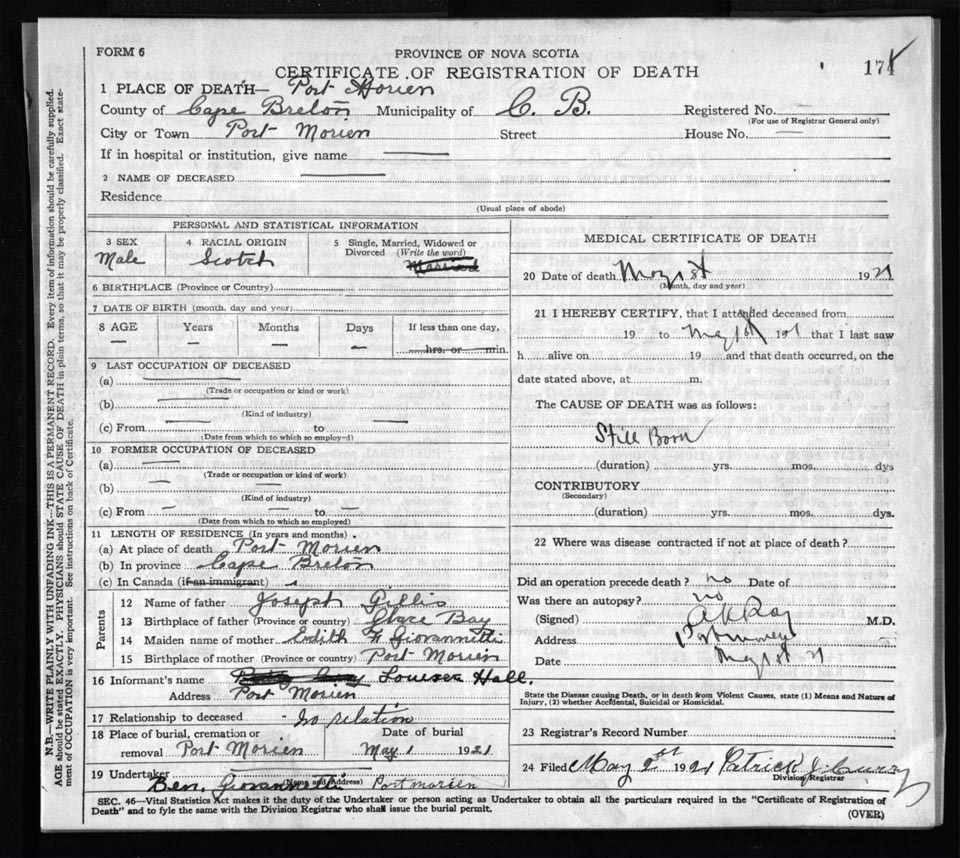 FORM 6
PROVINCE OF NOVA SCOTIA
CERTIFICATE OF REGISTRATION OF DEATH
174
1 PLACE OF DEATH— Port Morien
County of Cape Breton Municipality of C. B. Registered No.
(For use of Registrar General only)
City or Town Port Morien Street House No.
If in hospital or institution, give name
2 NAME OF DECEASED
Residence
(Usual place of abode)
PERSONAL AND STATISTICAL INFORMATION
3 SEX
Male
4 RACIAL ORIGIN
Scotch
5 Single, Married, Widowed or
Divorced (Write the word)
Married
6 BIRTHPLACE (Province or Country)
7 DATE OF BIRTH (month, day and year)
8 AGE Years Months Days If less than one day,
hrs. or min.
9 LAST OCCUPATION OF DECEASED
(a)
(Trade or occupation or kind or work)
(b)
(Kind of industry)
(c) From to
(Date from which to which so employed)
10 FORMER OCCUPATION OF DECEASED
(a)
(Trade or occupation or kind of work)
(b)
(Kind of industry)
(c) From to
(Date from which to which so employed)
11 LENGTH OF RESIDENCE (In years and months)
(a) At place of death Port Morien
(b) In province Cape Breton
(c) In Canada (if an immigrant)
Parents
12 Name of father Joseph Gillis
13 Birthplace of father (Province or country) Glace Bay
14 Maiden name of mother Edith Giovannetti
15 Birthplace of mother (Province or country) Port Morien
16 Informant's name Louisea Hall.
Address Port Morien
17 Relationship to deceased - no relation
18 Place of burial, cremation or Date of burial
removal Port Morien May 1 1921
19 Undertaker
(Name and Address)
Ben. Giovannetti Port morien
MEDICAL CERTIFICATE OF DEATH
20 Date of death May 1st 1921
(Month, day and year)
21 I HEREBY CERTIFY, that I attended deceased from
19 to May 1st 1921 that I last saw
h alive on 19 and that death occurred, on the
date stated above, at m.
The CAUSE OF DEATH was as follows:
Still Born
(duration) yrs. mos. dys
CONTRIBUTORY
(Secondary)
(duration) yrs. mos. dys.
22 Where was disease contracted if not at place of death?
Did an operation precede death? no Date of
Was there an autopsy? no
(Signed) M.D.
Address
Date May 1st 21
State the Disease causing Death, or in death from Violent Causes, state (1) Means and Nature of
Injury, (2) whether Accidental, Suicidal or Homicidal.
23 Registrar's Record Number
24 Filed May 2st 1921 Patrick J. Curry
Division Registrar
SEC. 46—Vital Statistics Act makes it the duty of the Undertaker or person acting as Undertaker to obtain all the particulars required in the "Certificate of Registration of
Death" and to fyle the same with the Division Registrar who shall issue the burial permit.
(OVER)
N.B.—WRITE PLAINLY WITH UNFADING INK—THIS IS A PERMANENT RECORD. Every item of information should be carefully supplied.
AGE should be stated EXACTLY. PHYSICIANS should STATE CAUSE OF DEATH in plain terms, so that it may be properly classified. Exact state-
ment of OCCUPATION is very important. See instructions on back of Certificate.